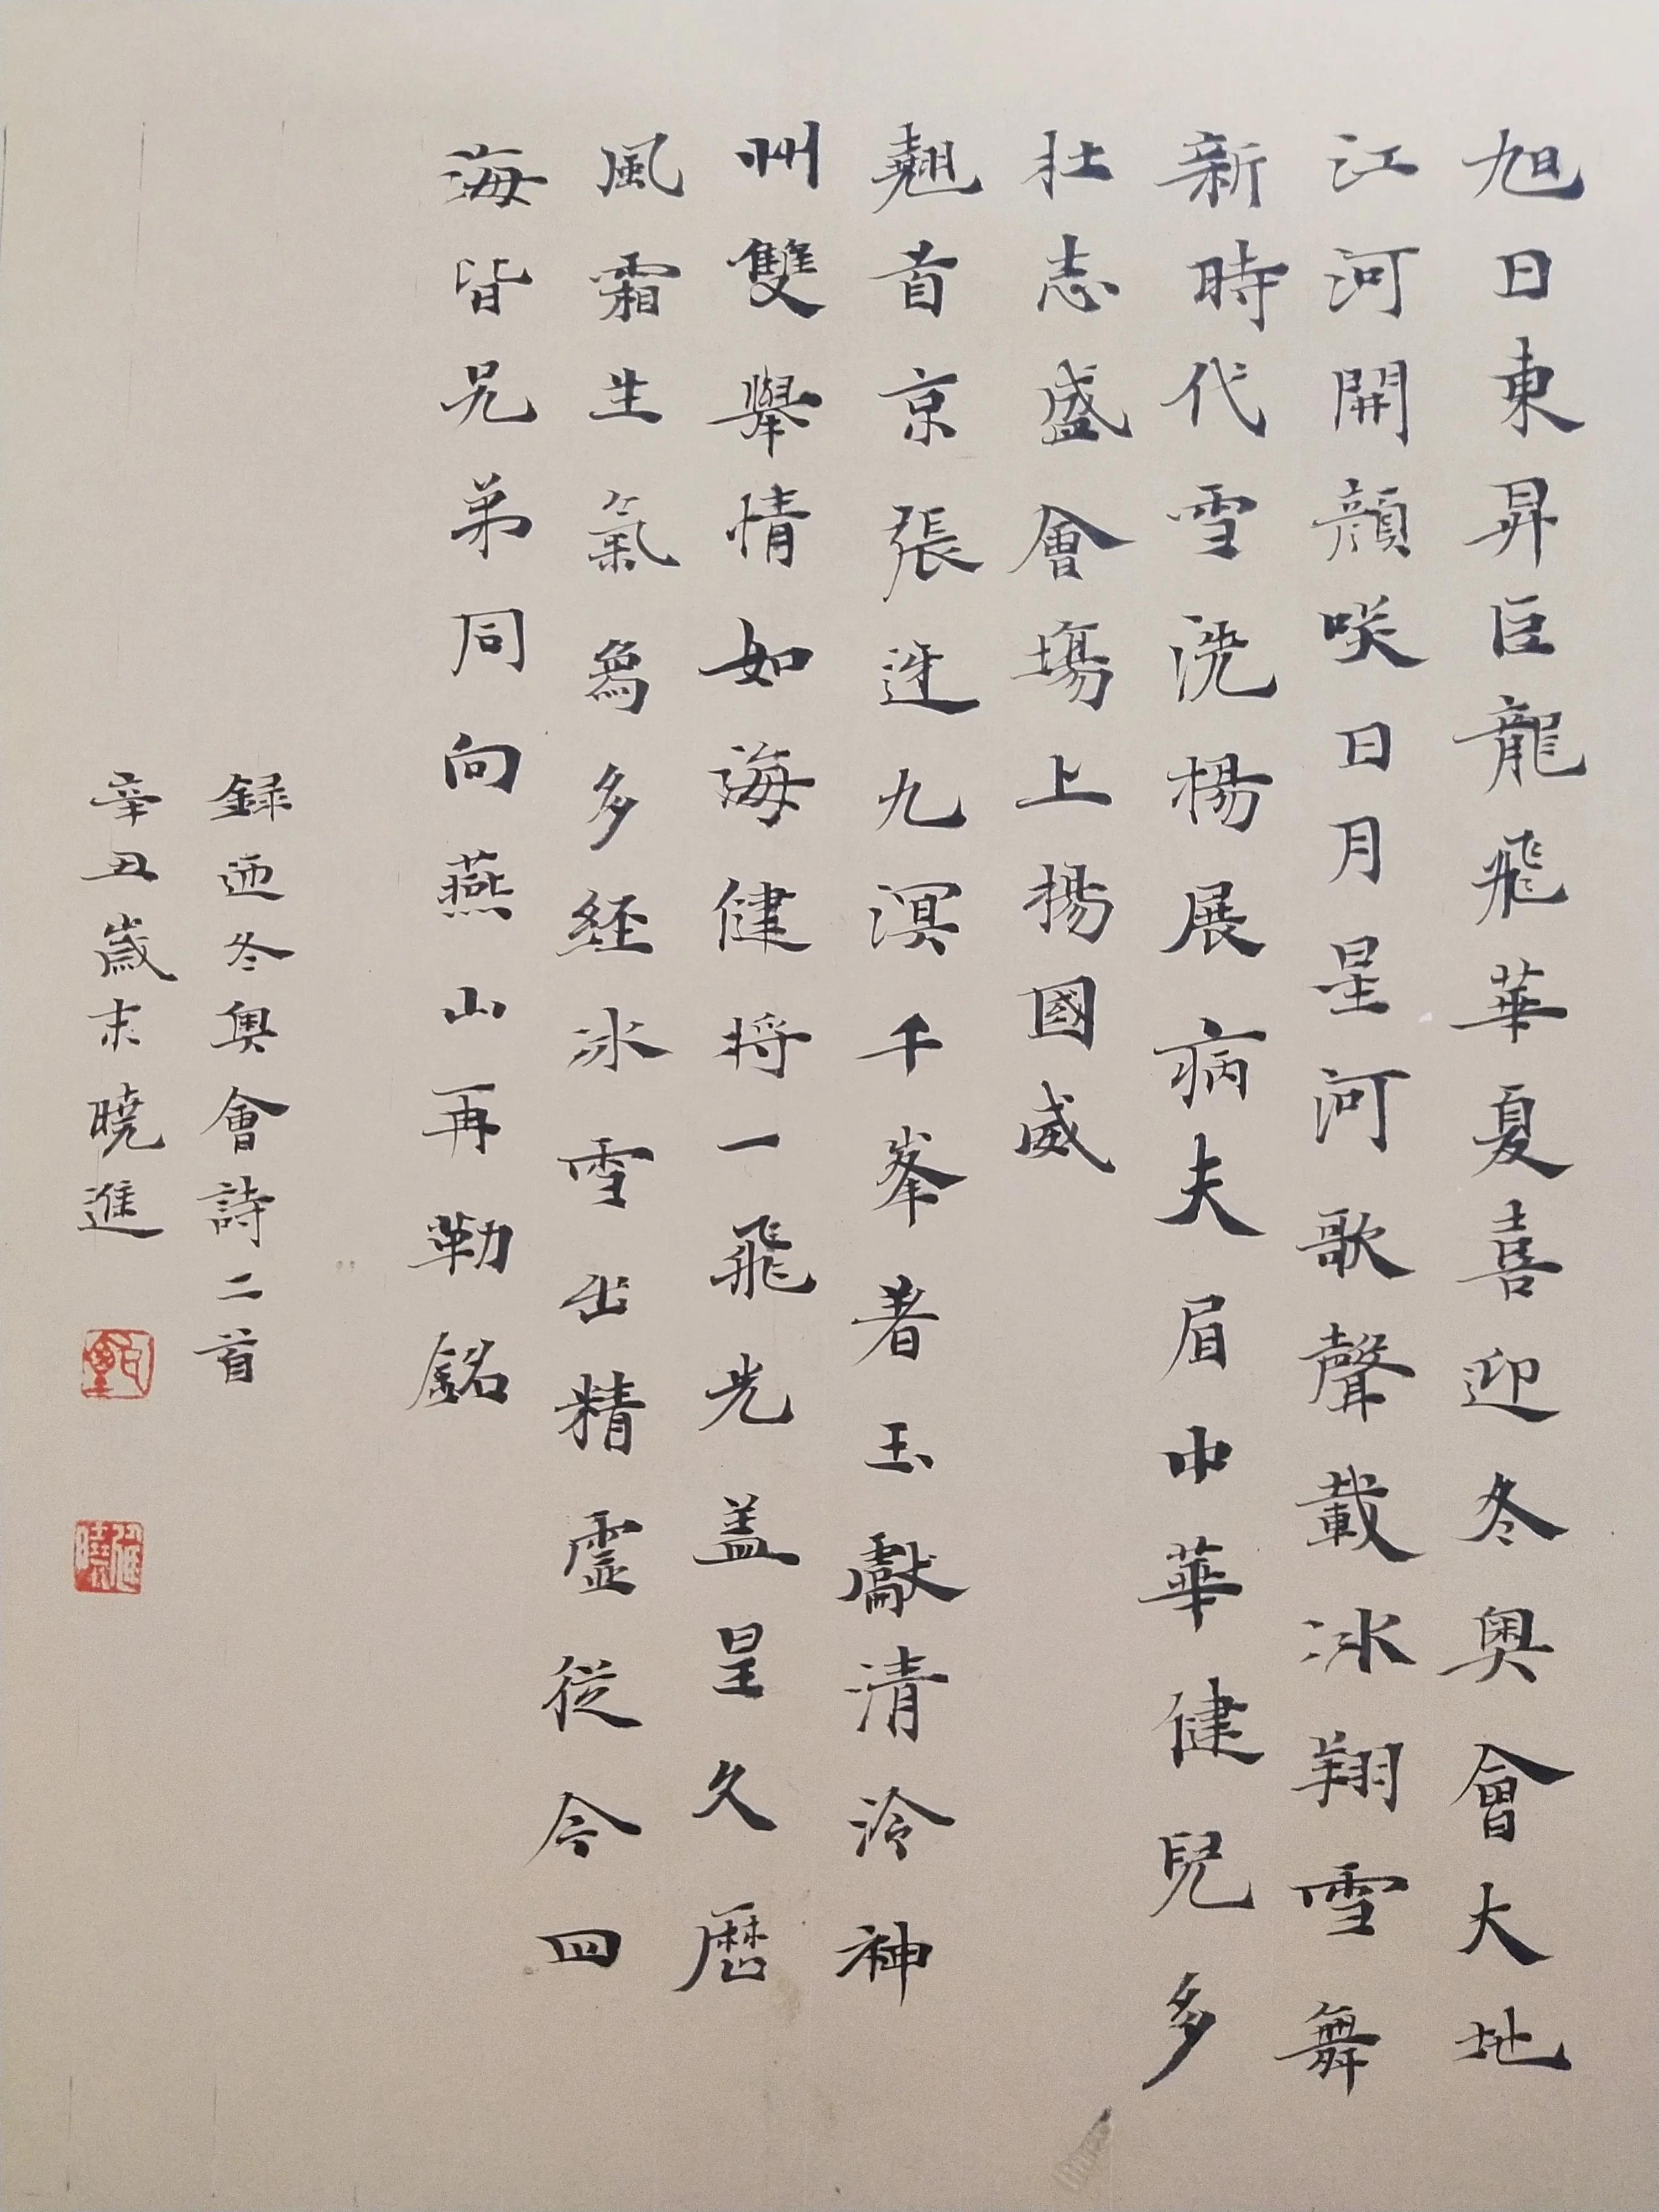 旭日東昇巨龍飛華夏喜迎冬奧會大地
江河開顔咲日月星河歌聲載冰翔雪舞
新時代雪洗楊展病夫眉中華健兒多
壯志盛會塲上揚國威
翹首京張迓九溟千峯著玉獻清泠神
州雙舉情如海健将一飛光盖呈久曆
風霜生氣為多經冰雪出精靈從今四
海皆兄弟同向燕山再勒銘
録迎冬奧會詩二首
辛丑歲末曉進
甄
曉進